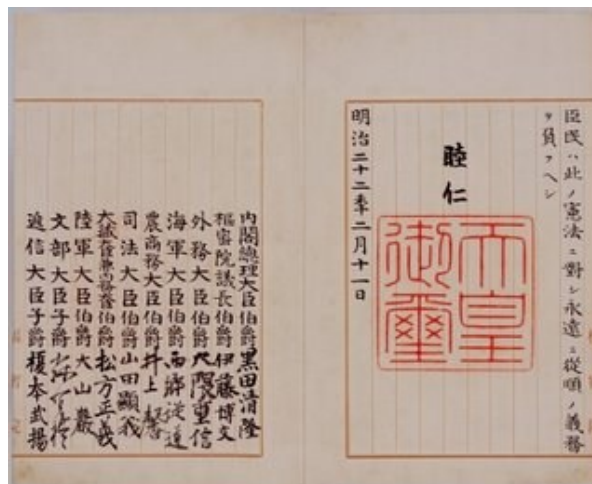 臣民ハ此ノ憲法ニ對シ永遠ニ從順ノ義務
ヲ負フヘシ
睦仁
天皇
御璽
明治二十二年二月十一日
内閣總理大臣伯爵黒田清隆
樞密院議長伯爵伊藤博文
外務大臣伯爵大隈重信
海軍大臣伯爵西郷從道
農商務大臣伯爵井上馨
司法大臣伯爵山田顯義
大蔵大臣兼内務大臣伯爵松方正義
陸軍大臣伯爵大山巖
文部大臣子爵森有禮
遞信大臣子爵榎本武揚